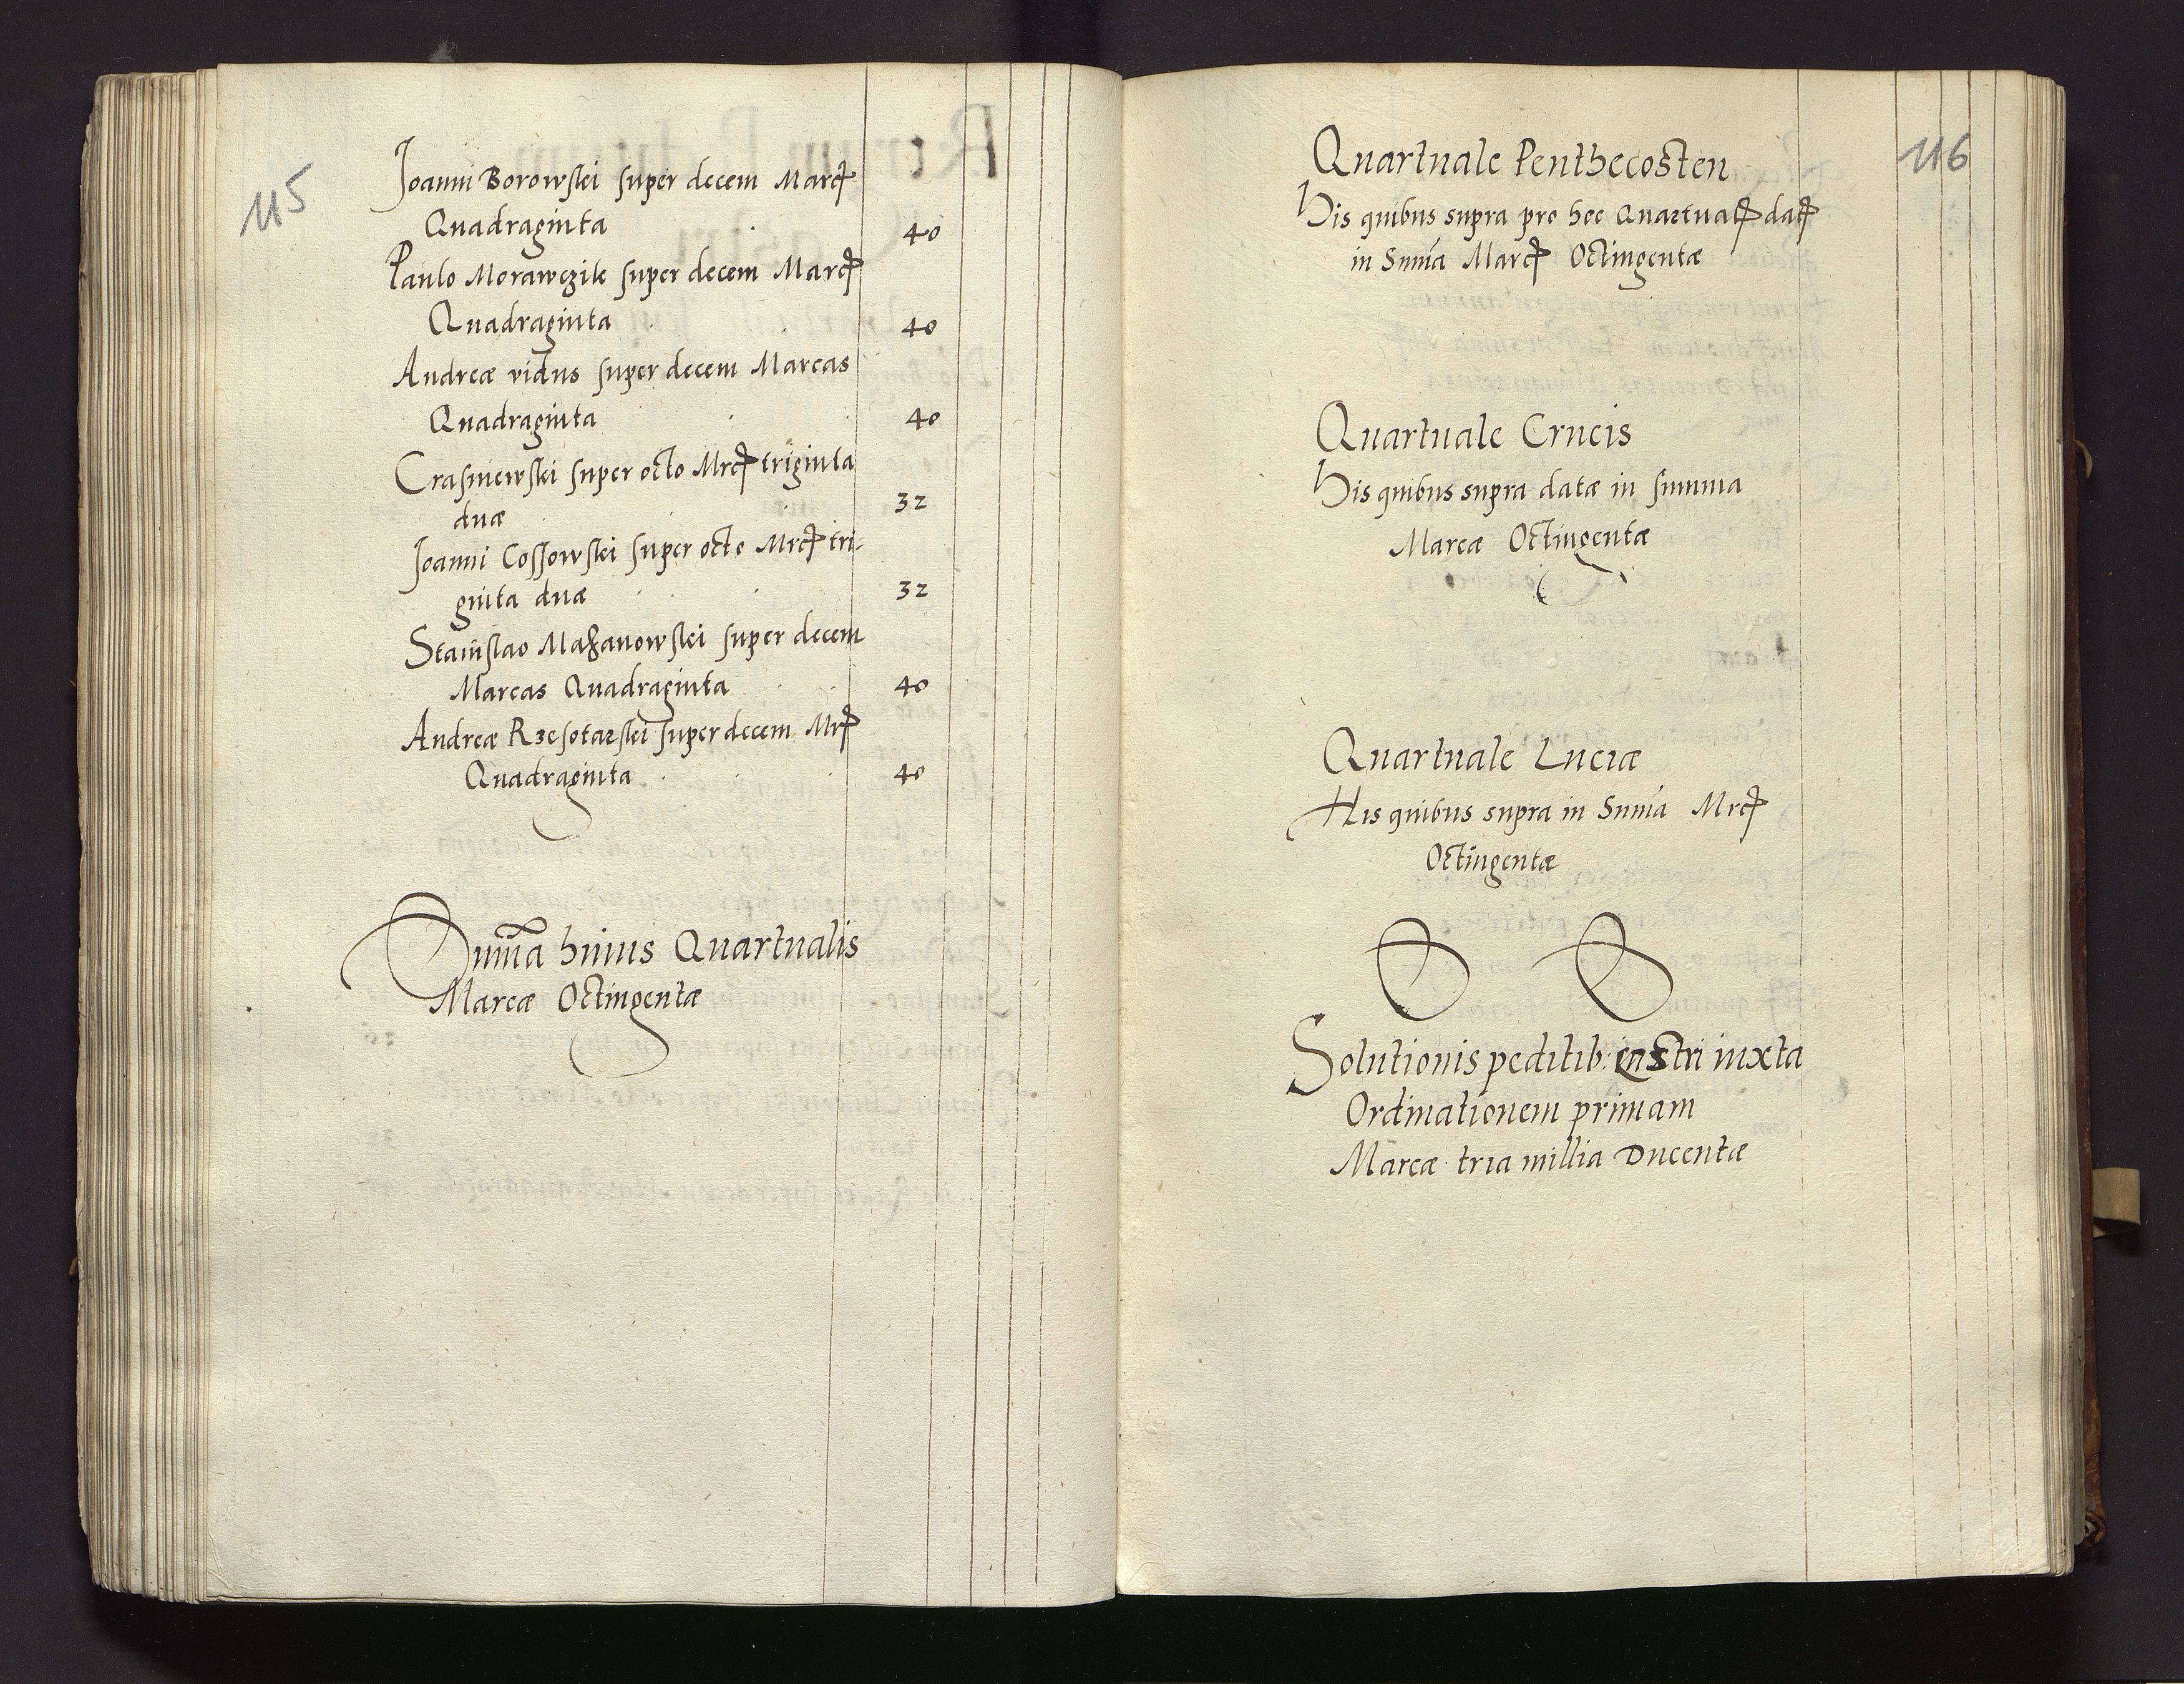 115
Joanni Borowskei super decem Marcę
Quadraginta 40
Paulo Morawczik super decem Marcę
Quadraginta 40
Andreæ vidus super decem Marcas
Quadraginta 40
Crasniewskei super octo Mrcę triginta
duæ 32
Joanni Cossowskei super octo Mrcę tri-
ginta duæ 32
Stanislao Maxanowskei super decem
Marcas Quadraginta 40
Andreæ Rzesotarskei super decem Mrę
Quadraginta 40
Summa huius Quartualis
Marcæ Octingentæ
116
Quartuale Penthecosten
His quibus supra pro hoc Quartuale datę
in Suma Marcę Octingentæ
Quartuale Crucis
His quibus supra datæ in summa
Marcæ Octingentæ
Quartuale Luciæ
His quibus supra in Suma Mrcę
Octingentæ
Solutionis peditib: castri iuxta
Ordinationem primam
Marcæ tria millia Ducentæ